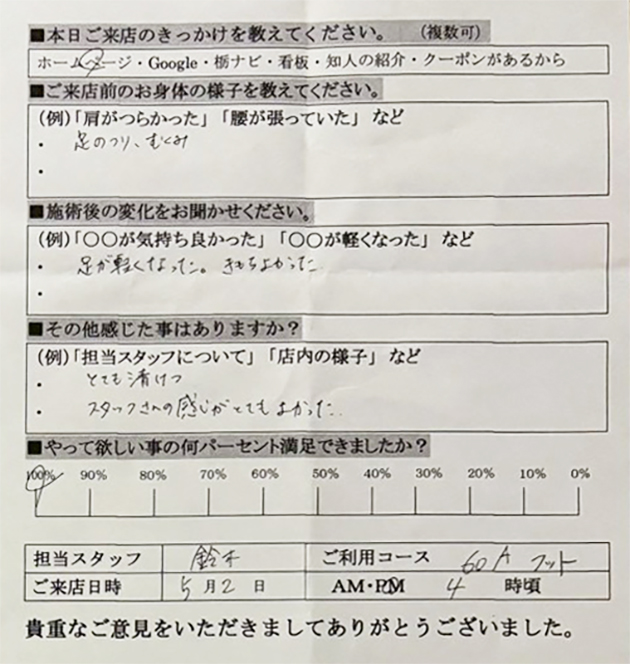 ■本日ご来店のきっかけを教えてください。 (複数可)
ホームページ・Google・栃ナビ・看板・知人の紹介・クーポンがあるから
■ご来店前のお身体の様子を教えてください。
(例)「肩がつらかった」「腰が張っていた」など
・ 足のつり、むくみ
・
■施術後の変化をお聞かせください。
(例)「〇〇が気持ち良かった」「〇〇が軽くなった」など
・ 足が軽くなった。きもちよかった
・
■その他感じた事はありますか？
(例)「担当スタッフについて」「店内の様子」など
・ とても清けつ
・ スタッフさんの感じがとてもよかった。
■やって欲しい事の何パーセント満足できましたか？
100% 90% 80% 70% 60% 50% 40% 30% 20% 10% 0%
担当スタッフ 鈴木 ご利用コース 60A フット
ご来店日時 5月2日 AM・PM 4 時頃
貴重なご意見をいただきましてありがとうございました。